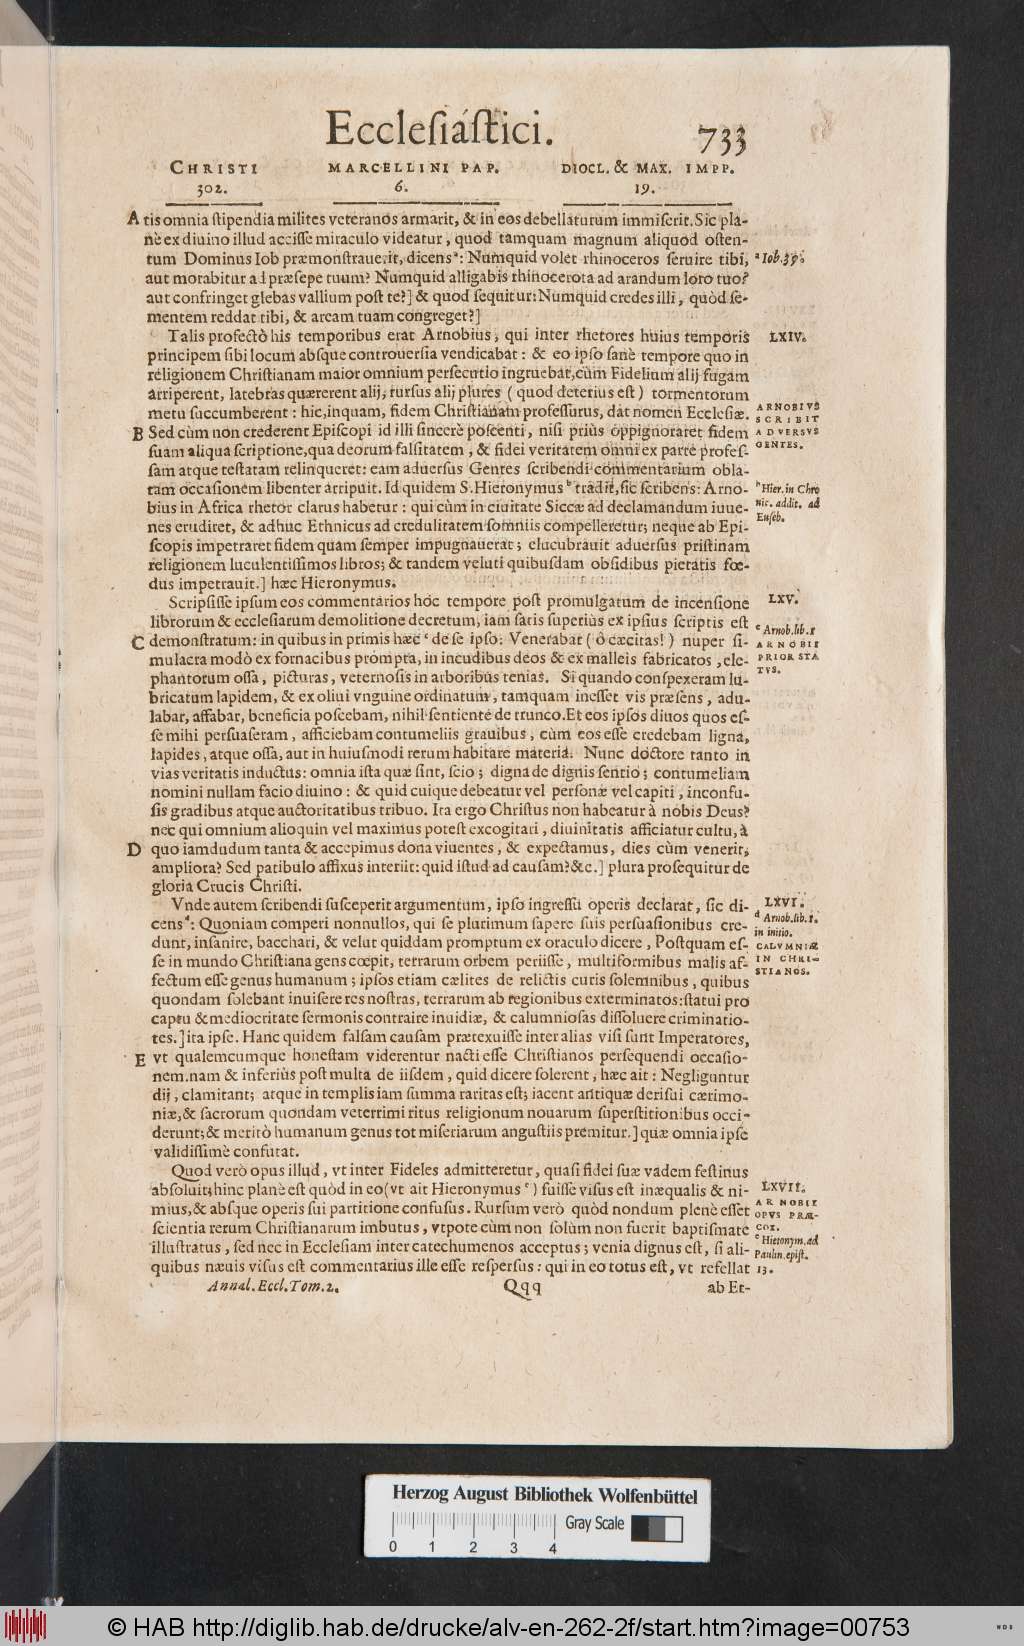 Ecclesiástici.
733
CHRISTI
302.
MARCELLINI PAP.
6.
DIOCL. & MAX. IMPP.
19.
A tis omnia stipendia milites veteranos armarit, & in eos debellaturum immiserit. Sic pla-
nè ex diuino illud accisse miraculo videatur, quod tamquam magnum aliquod osten-
tum Dominus Iob præmonstrauerit, dicens ª: Numquid volet rhinoceros seruire tibi,
ª Iob.39.
aut morabitur ad præsepe tuum? Numquid alligabis rhinocerota ad arandum loro tuo?
aut confringet glebas vallium post te?] & quod sequitur: Numquid credes illi, quòd se-
mentem reddat tibi, & aream tuam congreget?]
Talis profectò his temporibus erat Arnobius, qui inter rhetores huius temporis
LXIV.
principem sibi locum absque controuersia vendicabat: & eo ipso sanè tempore quo in
religionem Christianam maior omnium persecutio ingruebat, cùm Fidelium alij fugam
arriperent, latebras quærerent alij, rursus alij plures (quod deterius est) tormentorum
metu succumberent: hic, inquam, fidem Christianam professurus, dat nomen Ecclesiæ.
B Sed cùm non crederent Episcopi id illi sincerè poscenti, nisi priùs oppignoraret fidem
suam aliqua scriptione, qua deorum falsitatem, & fidei veritatem omni ex parte profes-
ARNOBIVS
SCRIBIT
ADVERSVS
GENTES.
sam atque testatam relinqueret: eam aduersus Gentes scribendi commentarium obla-
tam occasionem libenter arripuit. Id quidem S. Hieronymus ᵇ tradit, sic scribens: Arno-
bius in Africa rhetor clarus habetur: qui cùm in ciuitate Siccæ ad declamandum iuue-
nes erudiret, & adhuc Ethnicus ad credulitatem somniis compelleretur; neque ab Epi-
ᵇ Hier. in Chro
nic. addit. ad
Euseb.
scopis impetraret fidem quam semper impugnauerat; elucubrauit aduersus pristinam
religionem luculentissimos libros; & tandem veluti quibusdam obsidibus pietatis fœ-
dus impetrauit.] hæc Hieronymus.
Scripsisse ipsum eos commentarios hoc tempore post promulgatum de incensione
LXV.
librorum & ecclesiarum demolitione decretum, iam satis superiùs ex ipsius scriptis est
C demonstratum: in quibus in primis hæc ᶜ de se ipso: Venerabar (ô cæcitas!) nuper si-
mulacra modò ex fornacibus prompta, in incudibus deos & ex malleis fabricatos, ele-
ᶜ Arnob. lib. 1
ARNOBII
PRIOR STA
TVS.
phantorum ossa, picturas, veternosis in arboribus tenias. Si quando conspexeram lu-
bricatum lapidem, & ex oliui vnguine ordinatum, tamquam inesset vis præsens, adu-
labar, affabar, beneficia poscebam, nihil sentiente de trunco. Et eos ipsos diuos quos es-
se mihi persuaseram, afficiebam contumeliis grauibus, cùm eos esse credebam ligna,
lapides, atque ossa, aut in huiusmodi rerum habitare materia. Nunc doctore tanto in
vias veritatis inductus: omnia ista quæ sint, scio; digna de dignis sentio; contumeliam
nomini nullam facio diuino: & quid cuique debeatur vel personæ vel capiti, inconfu-
sis gradibus atque auctoritatibus tribuo. Ita ergo Christus non habeatur à nobis Deus?
nec qui omnium alioquin vel maximus potest excogitari, diuinitatis afficiatur cultu, à
D quo iamdudum tanta & accepimus dona viuentes, & expectamus, dies cùm venerit,
ampliora? Sed patibulo affixus interiit: quid istud ad causam? &c.] plura prosequitur de
gloria Crucis Christi.
Vnde autem scribendi susceperit argumentum, ipso ingressu operis declarat, sic di-
LXVI.
cens ᵈ: Quoniam comperi nonnullos, qui se plurimum sapere suis persuasionibus cre-
dunt, insanire, bacchari, & velut quiddam promptum ex oraculo dicere, Postquam es-
ᵈ Arnob. lib. 1.
in initio.
se in mundo Christiana gens cœpit, terrarum orbem periisse, multiformibus malis af-
fectum esse genus humanum; ipsos etiam cælites de relictis curis solemnibus, quibus
CALVMNIÆ
IN CHRI-
STIANOS.
quondam solebant inuisere res nostras, terrarum ab regionibus exterminatos: statui pro
captu & mediocritate sermonis contraire inuidiæ, & calumniosas dissoluere criminatio-
tes.] ita ipse. Hanc quidem falsam causam prætexuisse inter alias visi sunt Imperatores,
E vt qualemcumque honestam viderentur nacti esse Christianos persequendi occasio-
nem. nam & inferiùs post multa de iisdem, quid dicere solerent, hæc ait: Negliguntur
dij, clamitant; atque in templis iam summa raritas est; iacent antiquæ derisui cærimo-
niæ, & sacrorum quondam veterrimi ritus religionum nouarum superstitionibus occi-
derunt; & meritò humanum genus tot miseriarum angustiis premitur.] quæ omnia ipse
validissimè confutat.
Quod verò opus illud, vt inter Fideles admitteretur, quasi fidei suæ vadem festinus
absoluit; hinc planè est quòd in eo (vt ait Hieronymus ᵉ) fuisse visus est inæqualis & ni-
LXVII.
mius, & absque operis sui partitione confusus. Rursum verò quòd nondum plenè esset
scientia rerum Christianarum imbutus, vtpote cùm non solùm non fuerit baptismate
ARNOBII
OPVS PRÆ-
COX.
illustratus, sed nec in Ecclesiam inter catechumenos acceptus; venia dignus est, si ali-
quibus næuis visus est commentarius ille esse respersus: qui in eo totus est, vt refellat
ᵉ Hieronym. ad
Paulin. epist.
13.
Annal. Eccl. Tom. 2.
Qqq
ab Et-
Herzog August Bibliothek Wolfenbüttel
0 1 2 3 4
Gray Scale
© HAB http://diglib.hab.de/drucke/alv-en-262-2f/start.htm?image=00753